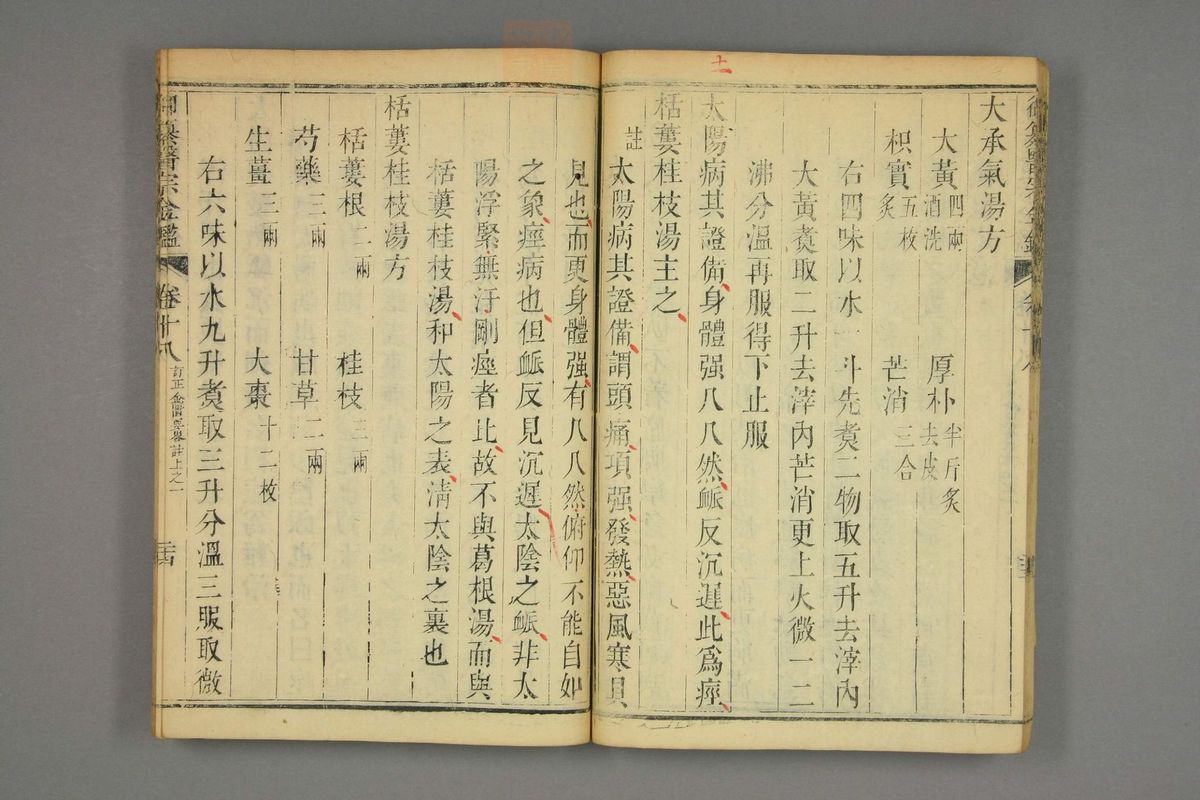 十一
大承氣湯方
大黃四兩酒洗 厚朴半斤炙去皮
枳實五枚炙 芒消三合
右四味以水一斗先煑二物取五升去滓內
大黃煑取二升去滓內芒消更上火微一二
沸分溫再服得下止服
太陽病其證備身體强几几然脈反沉遲此爲痙
栝蔞桂枝湯主之
註太陽病其證備謂頭痛項强發熱惡風寒具
見也而更身體强有几几然俯仰不能自如
之象痙病也但脈反見沉遲太陰之脈非太
陽浮緊無汗剛痙者比故不與葛根湯而與
栝蔞桂枝湯和太陽之表淸太陰之裏也
栝蔞桂枝湯方
栝蔞根二兩 桂枝三兩
芍藥三兩 甘草二兩
生薑三兩 大棗十二枚
右六味以水九升煑取三升分溫三服取微
御纂醫宗金鑑 卷十八 訂正金匱要畧註上之一